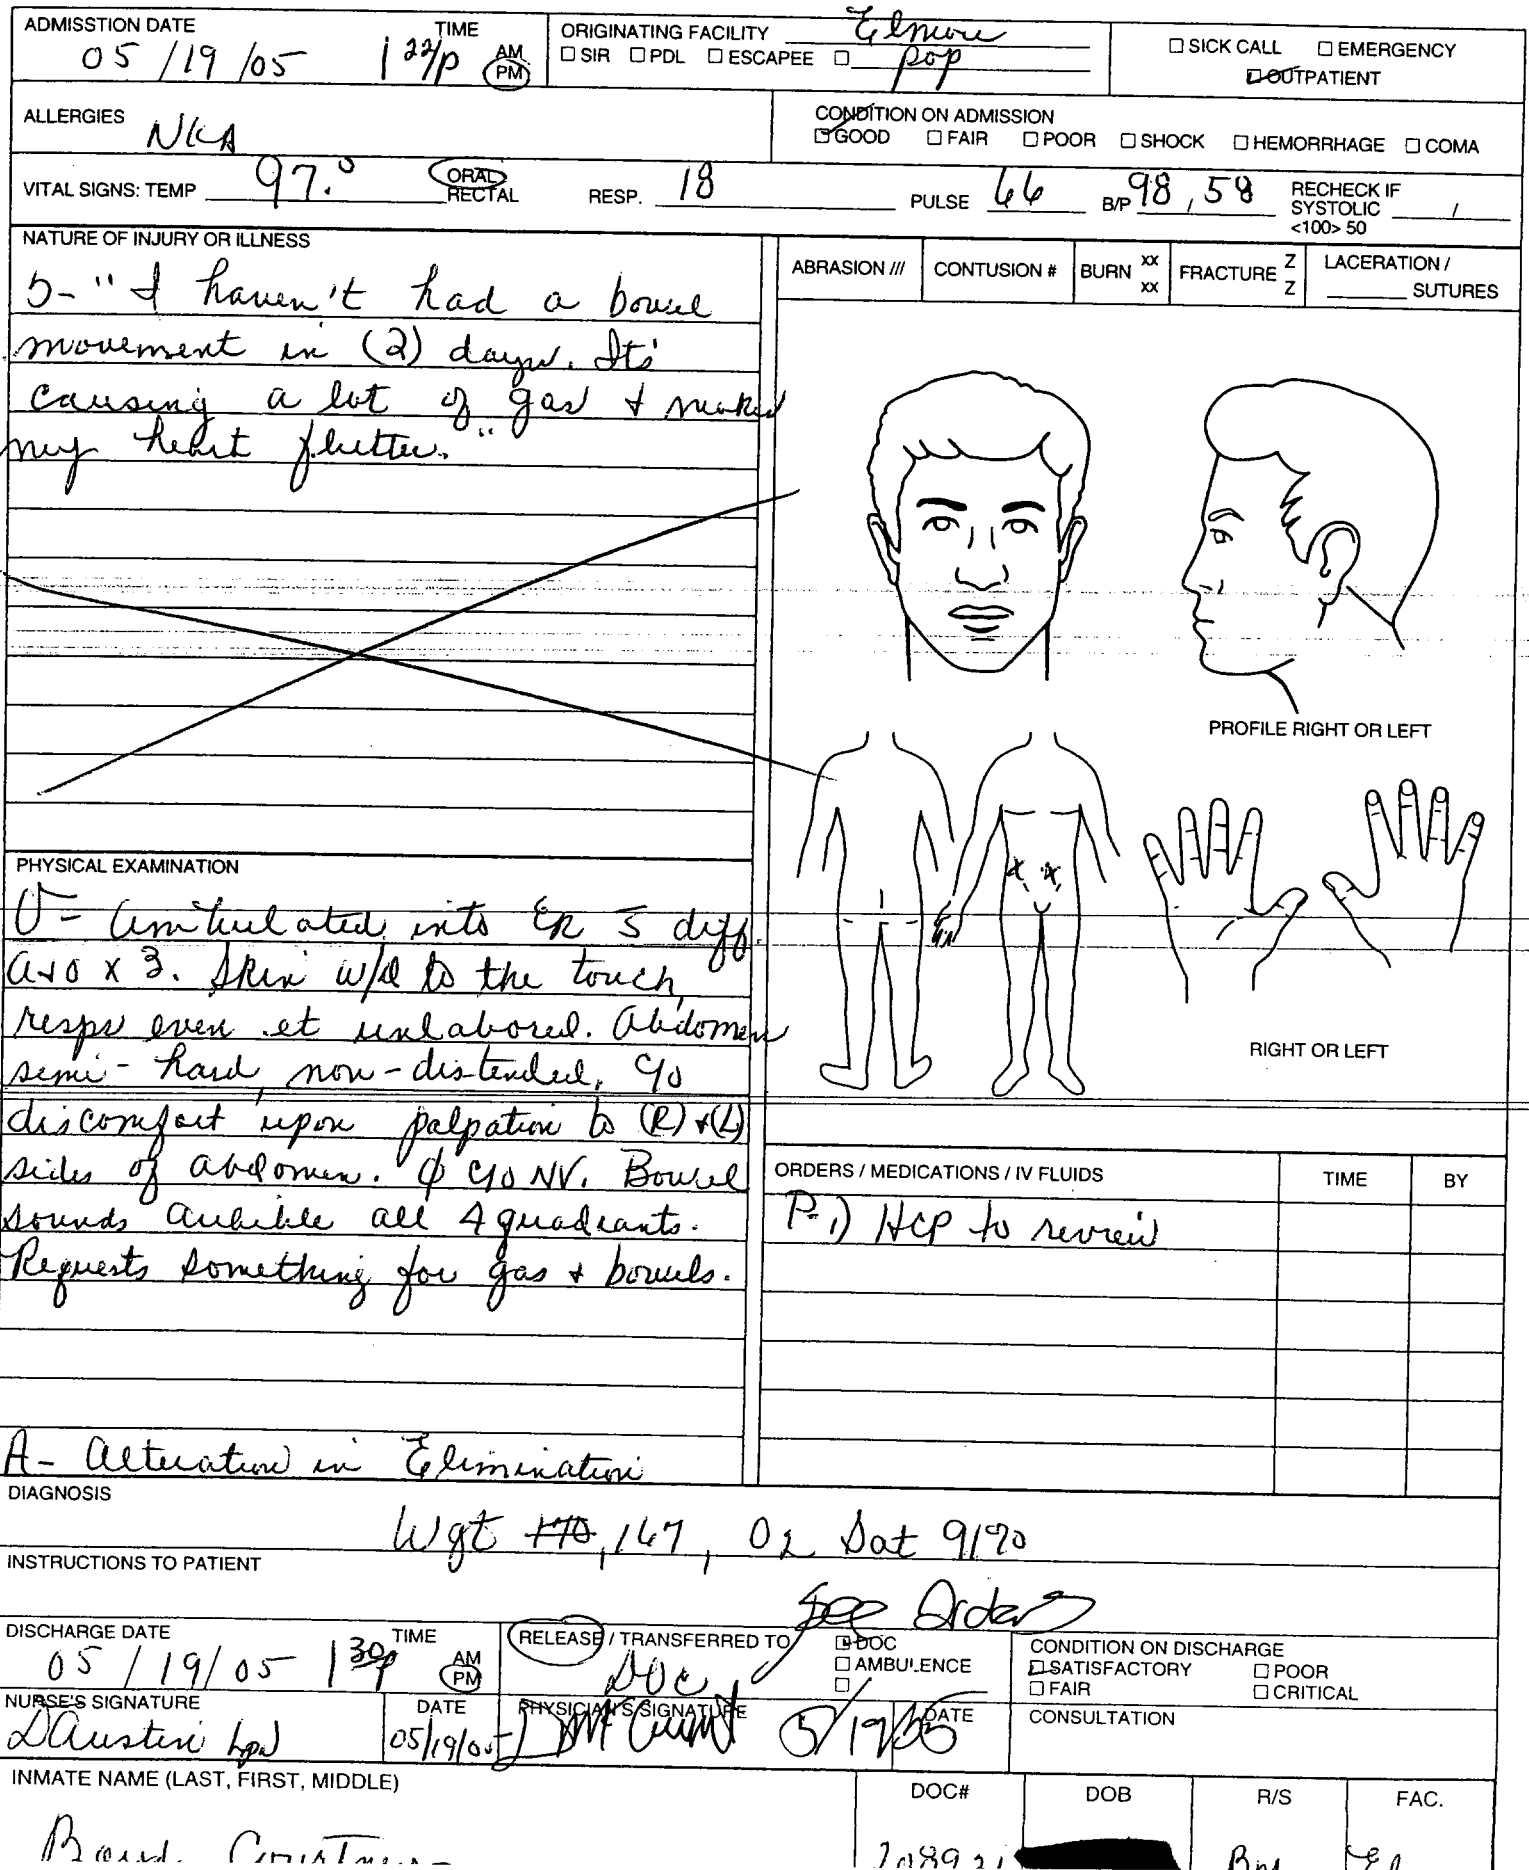 ADMISSTION DATE TIME ORIGINATING FACILITY Elmore
05 / 19 / 05 1 22/p AM PM □ SIR □ PDL □ ESCAPEE □ pop □ SICK CALL □ EMERGENCY
□ OUTPATIENT
ALLERGIES NKA CONDITION ON ADMISSION
□ GOOD □ FAIR □ POOR □ SHOCK □ HEMORRHAGE □ COMA
VITAL SIGNS: TEMP 97.0 ORAL RECTAL RESP. 18 PULSE 66 B/P 98 / 58 RECHECK IF SYSTOLIC / <100> 50
NATURE OF INJURY OR ILLNESS
S- "I haven't had a bowel
movement in (2) days. Its'
causing a lot of gas + makes
my heart flutter."
ABRASION /// CONTUSION # BURN xx xx FRACTURE Z Z LACERATION / SUTURES
PROFILE RIGHT OR LEFT
RIGHT OR LEFT
PHYSICAL EXAMINATION
O- Ambulated into ER s diff.
A+O x 3. Skin w/d to the touch,
resps even et unlabored. Abdomen
semi-hard, non-distended. c/o
discomfort upon palpation to (R)+(L)
sides of abdomen. ϕ c/o NV. Bowel
sounds audible all 4 quadrants.
Requests something for gas + bowels.
A- Alteration in Elimination
ORDERS / MEDICATIONS / IV FLUIDS TIME BY
P-1) HCP to review
DIAGNOSIS
Wgt 170, 167, O2 Sat 91%
INSTRUCTIONS TO PATIENT
See Orders
DISCHARGE DATE TIME
05 / 19 / 05 1 30p AM PM
RELEASE / TRANSFERRED TO □ DOC
DOC □ AMBULENCE
□
CONDITION ON DISCHARGE
□ SATISFACTORY □ POOR
□ FAIR □ CRITICAL
NURSE'S SIGNATURE DATE PHYSICIAN'S SIGNATURE DATE CONSULTATION
DAustin lpn 05/19/05 5/19/05
INMATE NAME (LAST, FIRST, MIDDLE) DOC# DOB R/S FAC.
Courtney